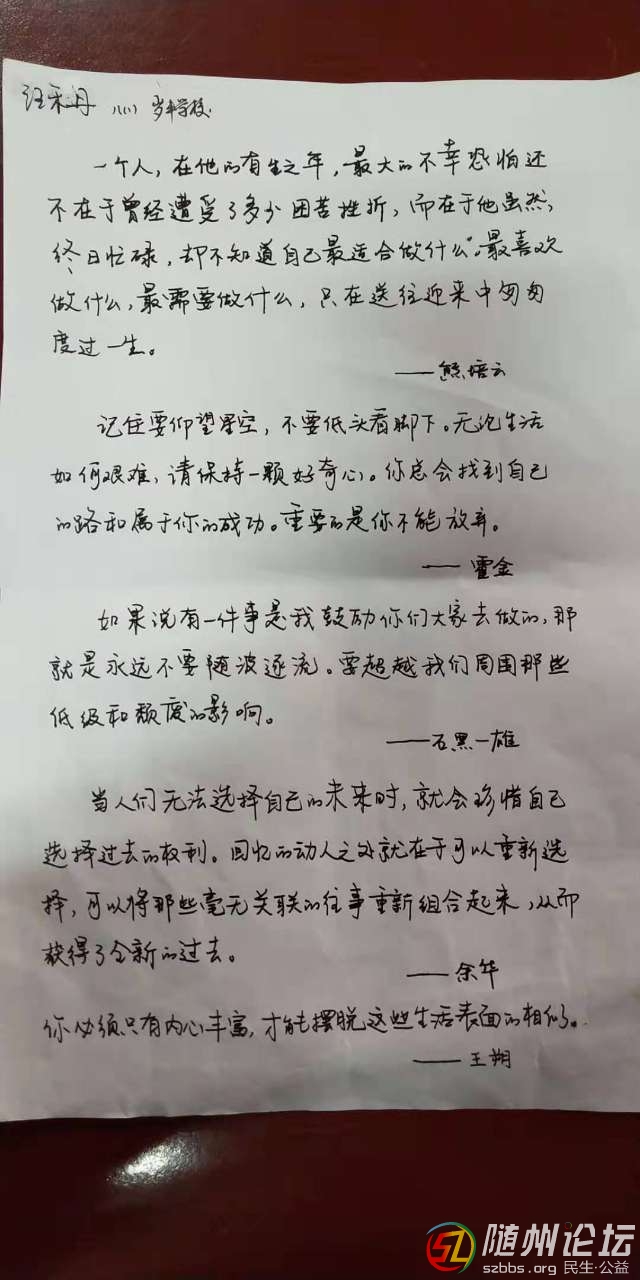 汪禾丹 八(1) 岁丰学校
一个人，在他的有生之年，最大的不幸恐怕还
不在于曾经遭受了多少困苦挫折，而在于他虽然，
终日忙碌，却不知道自己最适合做什么，最喜欢
做什么，最需要做什么，只在送往迎来中匆匆
度过一生。
——熊培云
记住要仰望星空，不要低头看脚下。无论生活
如何艰难，请保持一颗好奇心。你总会找到自己
的路和属于你的成功。重要的是你不能放弃。
——霍金
如果说有一件事是我鼓励你们大家去做的，那
就是永远不要随波逐流。要超越我们周围那些
低级和颓废的影响。
——石黑一雄
当人们无法选择自己的未来时，就会珍惜自己
选择过去的权利。回忆的动人之处就在于可以重新选
择，可以将那些毫无关联的往事重新组合起来，从而
获得了全新的过去。
——余华
你必须只有内心丰富，才能摆脱这些生活表面的相似。
——王朔
随州论坛
szbbs.org 民生·公益